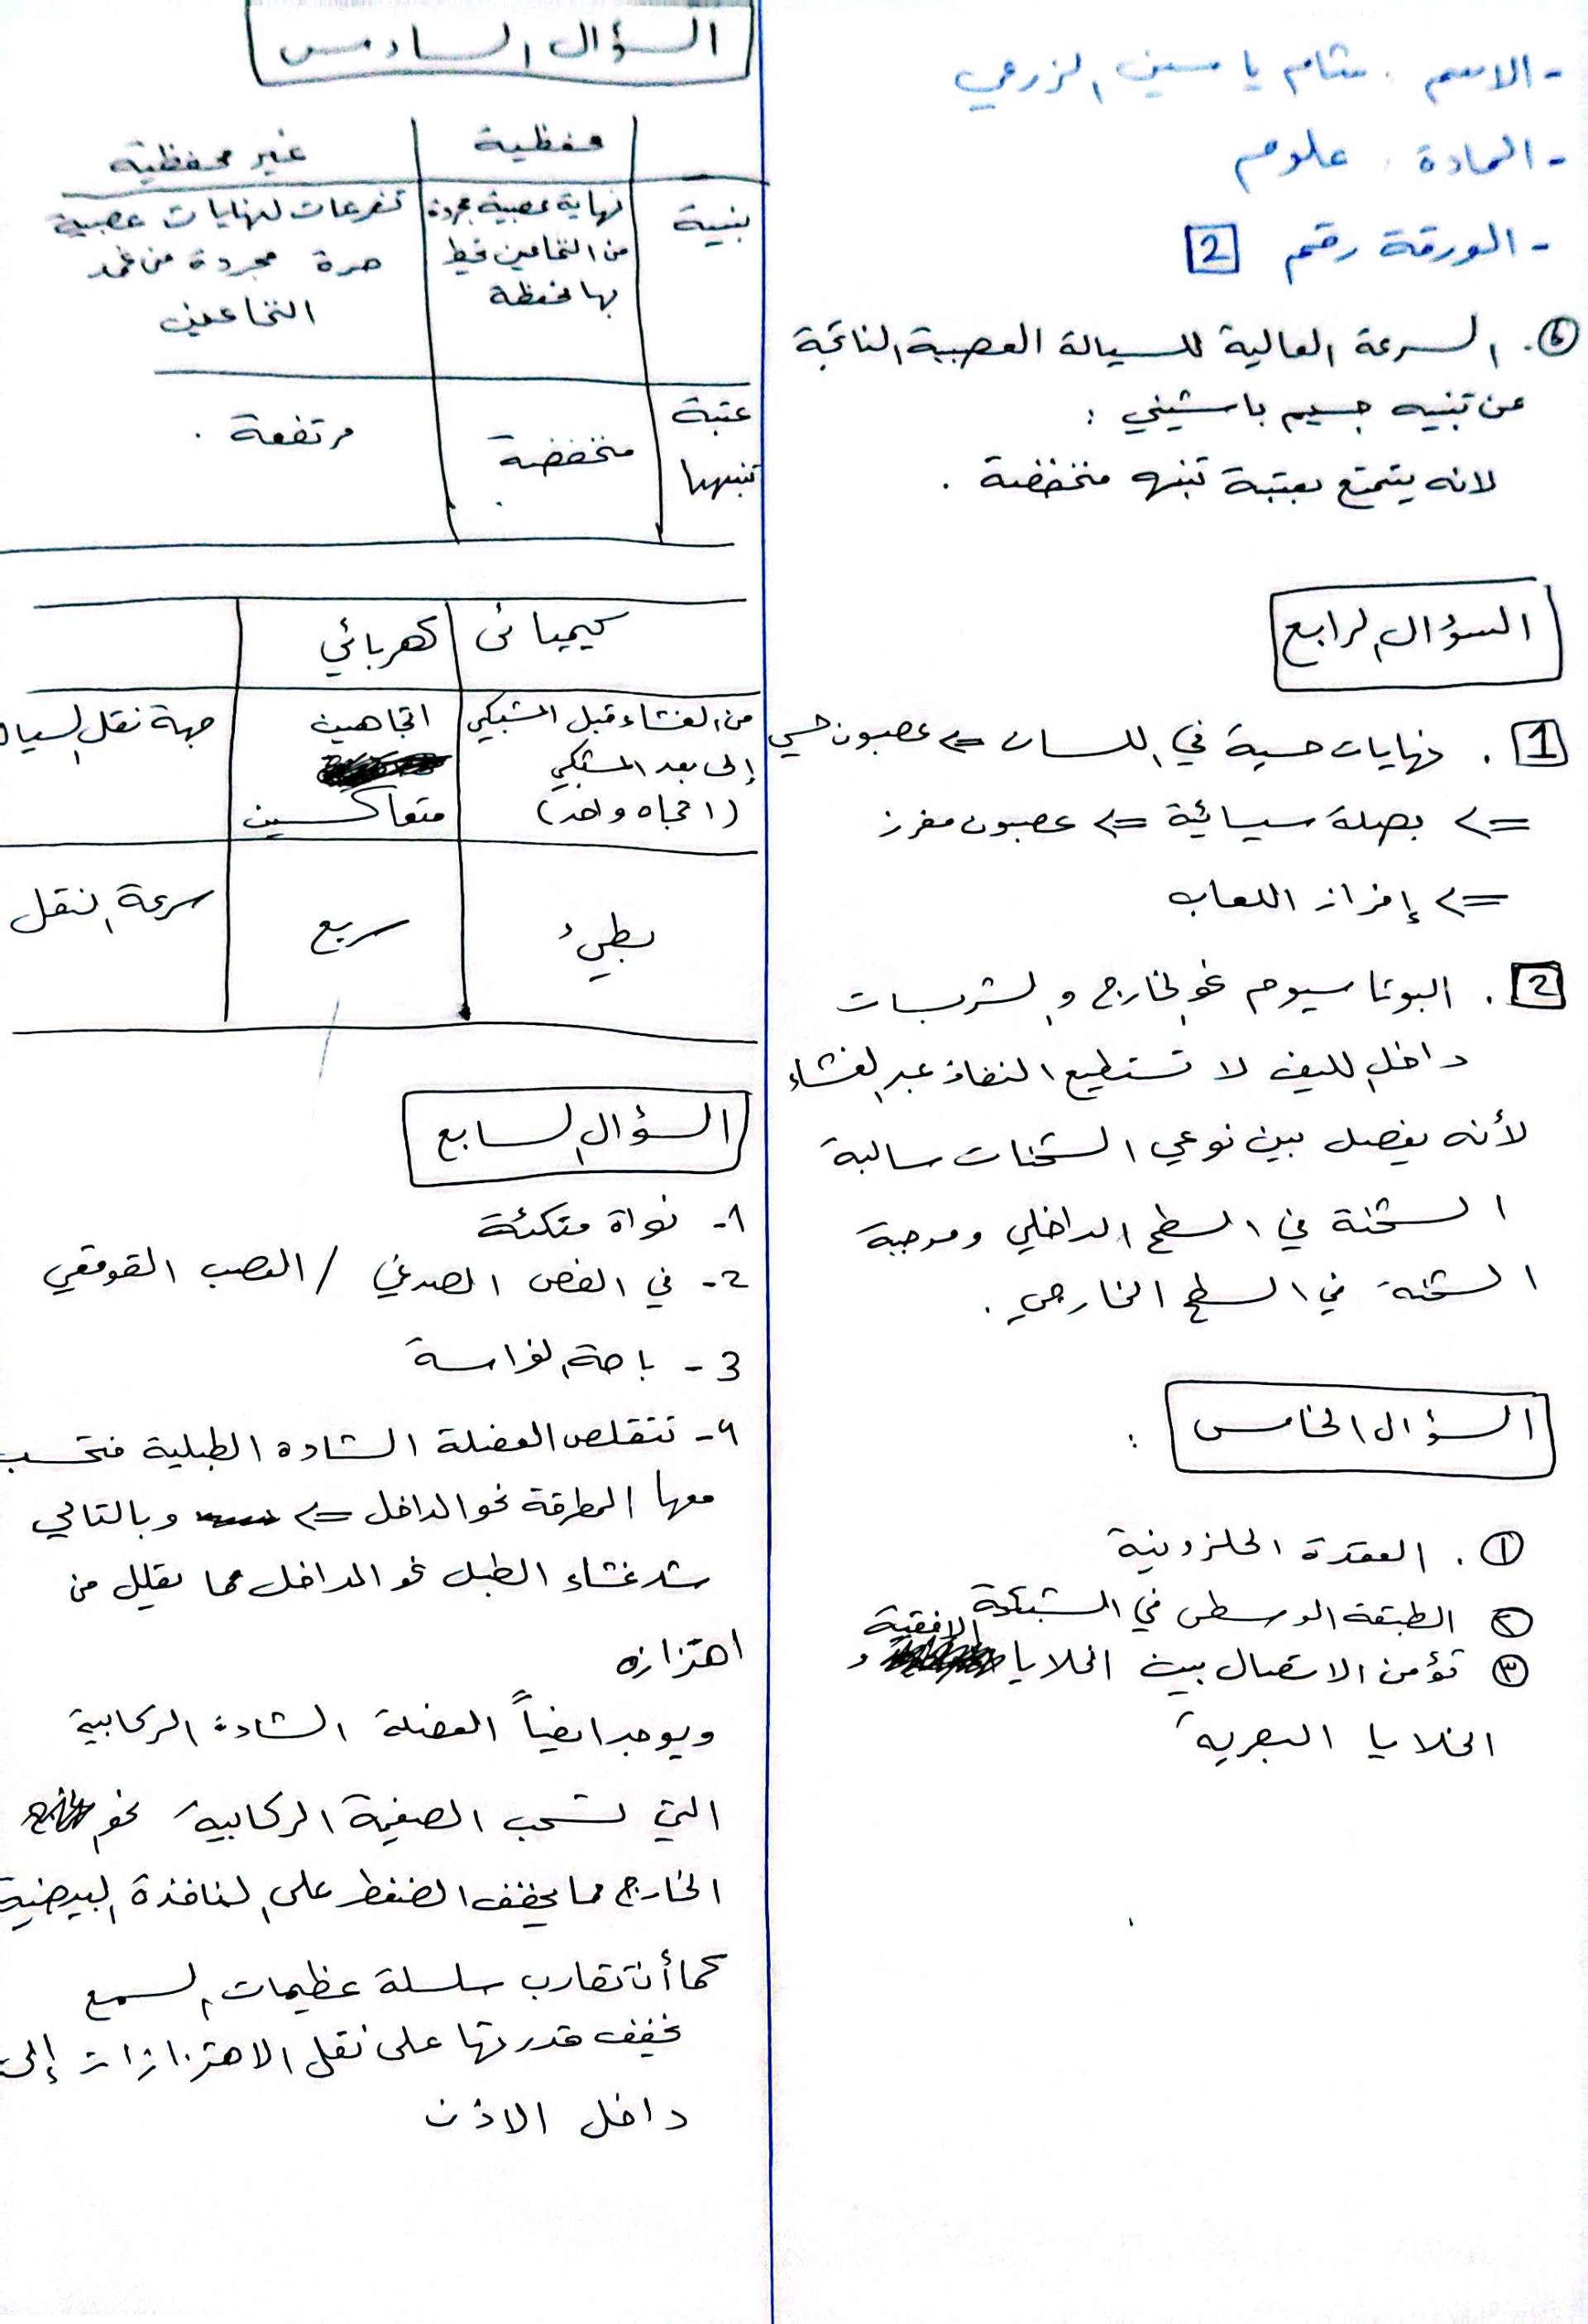 - الاسم : شام ياسين الزرعي
- المادة : علوم
- الورقة رقم 2
6. السرعة العالية للسيالة العصبية الناتجة
عن تنبيه جسيم باشيني :
لانه يتمتع بعتبة تنبه منخفضة .
السؤال الرابع
1 . نهايات حسية في اللسان => عصبون حسي
=> بصلة سيسائية => عصبون مفرز
=> إفراز اللعاب
2 . البوتاسيوم نحو الخارج والشرسبات
داخل الليف لا تستطيع النفاذ عبر الغشاء
لأنه يفصل بين نوعي الشحنات سالبة
الشحنة في السطح الداخلي وموجبة
الشحنة في السطح الخارجي .
السؤال الخامس :
1 . العقدة الحلزونية
2 الطبقة الوسطى في الشبكة
3 تؤمن الاتصال بين الخلايا الافقية و
الخلايا البصرية
السؤال السادس
محفظية غير محفظية
بنية نهاية عصبية مجردة تفرعات لنهايات عصبية
من النخاعين تحيط حرة مجردة من غمد
بها محفظة النخاعين
عتبة منخفضة مرتفعة .
تنبهها
كيميائي كهربائي
من الغشاء قبل المشبكي اتجاهين جهة نقل السيالة
إلى بعد المشبكي
(اتجاه واحد) متعاكسين
بطيء سريع سرعة النقل
السؤال السابع
1- نواة متكئة
2- في الفص الصدغي / العصب القوقعي
3- باحة الفراسة
4- تتقلص العضلة الشادة الطبلية فتسحب
معها المطرقة نحو الداخل => وبالتالي
شد غشاء الطبل نحو الداخل مما يقلل من
اهتزازه
ويوجد ايضاً العضلة الشادة الركابية
التي تسحب الصفيحة الركابية نحو
الخارج مما يخفف الضغط على النافذة البيضية
كما أن تقارب سلسلة عظيمات السمع
يخفف قدرتها على نقل الاهتزازات إلى
داخل الاذن